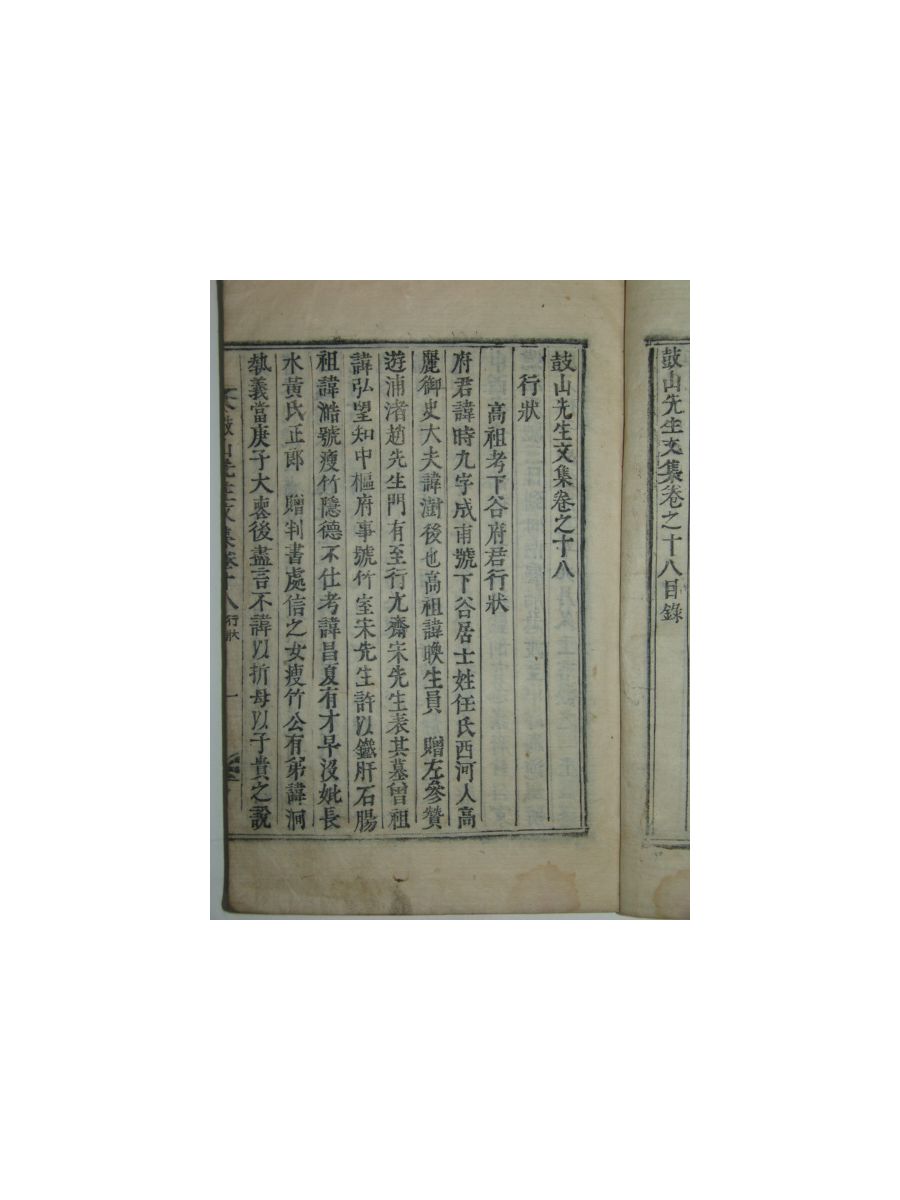 鼓山先生文集卷之十八目錄
鼓山先生文集卷之十八
行狀
高祖考下谷府君行狀
府君諱時九字成甫號下谷居士姓任氏西河人高
麗御史大夫諱澍後也高祖諱㬇生員 贈左參贊
遊浦渚趙先生門有至行尤齋宋先生表其墓曾祖
諱弘望知中樞府事號竹室宋先生許以鐵肝石腸
祖諱澔號瘦竹隱德不仕考諱昌夏有才早沒妣長
水黃氏正郎 贈判書處信之女瘦竹公有弟諱泂
執義當庚子大喪後盡言不諱以折母以子貴之說
鼓山先生文集卷十八 行狀 一